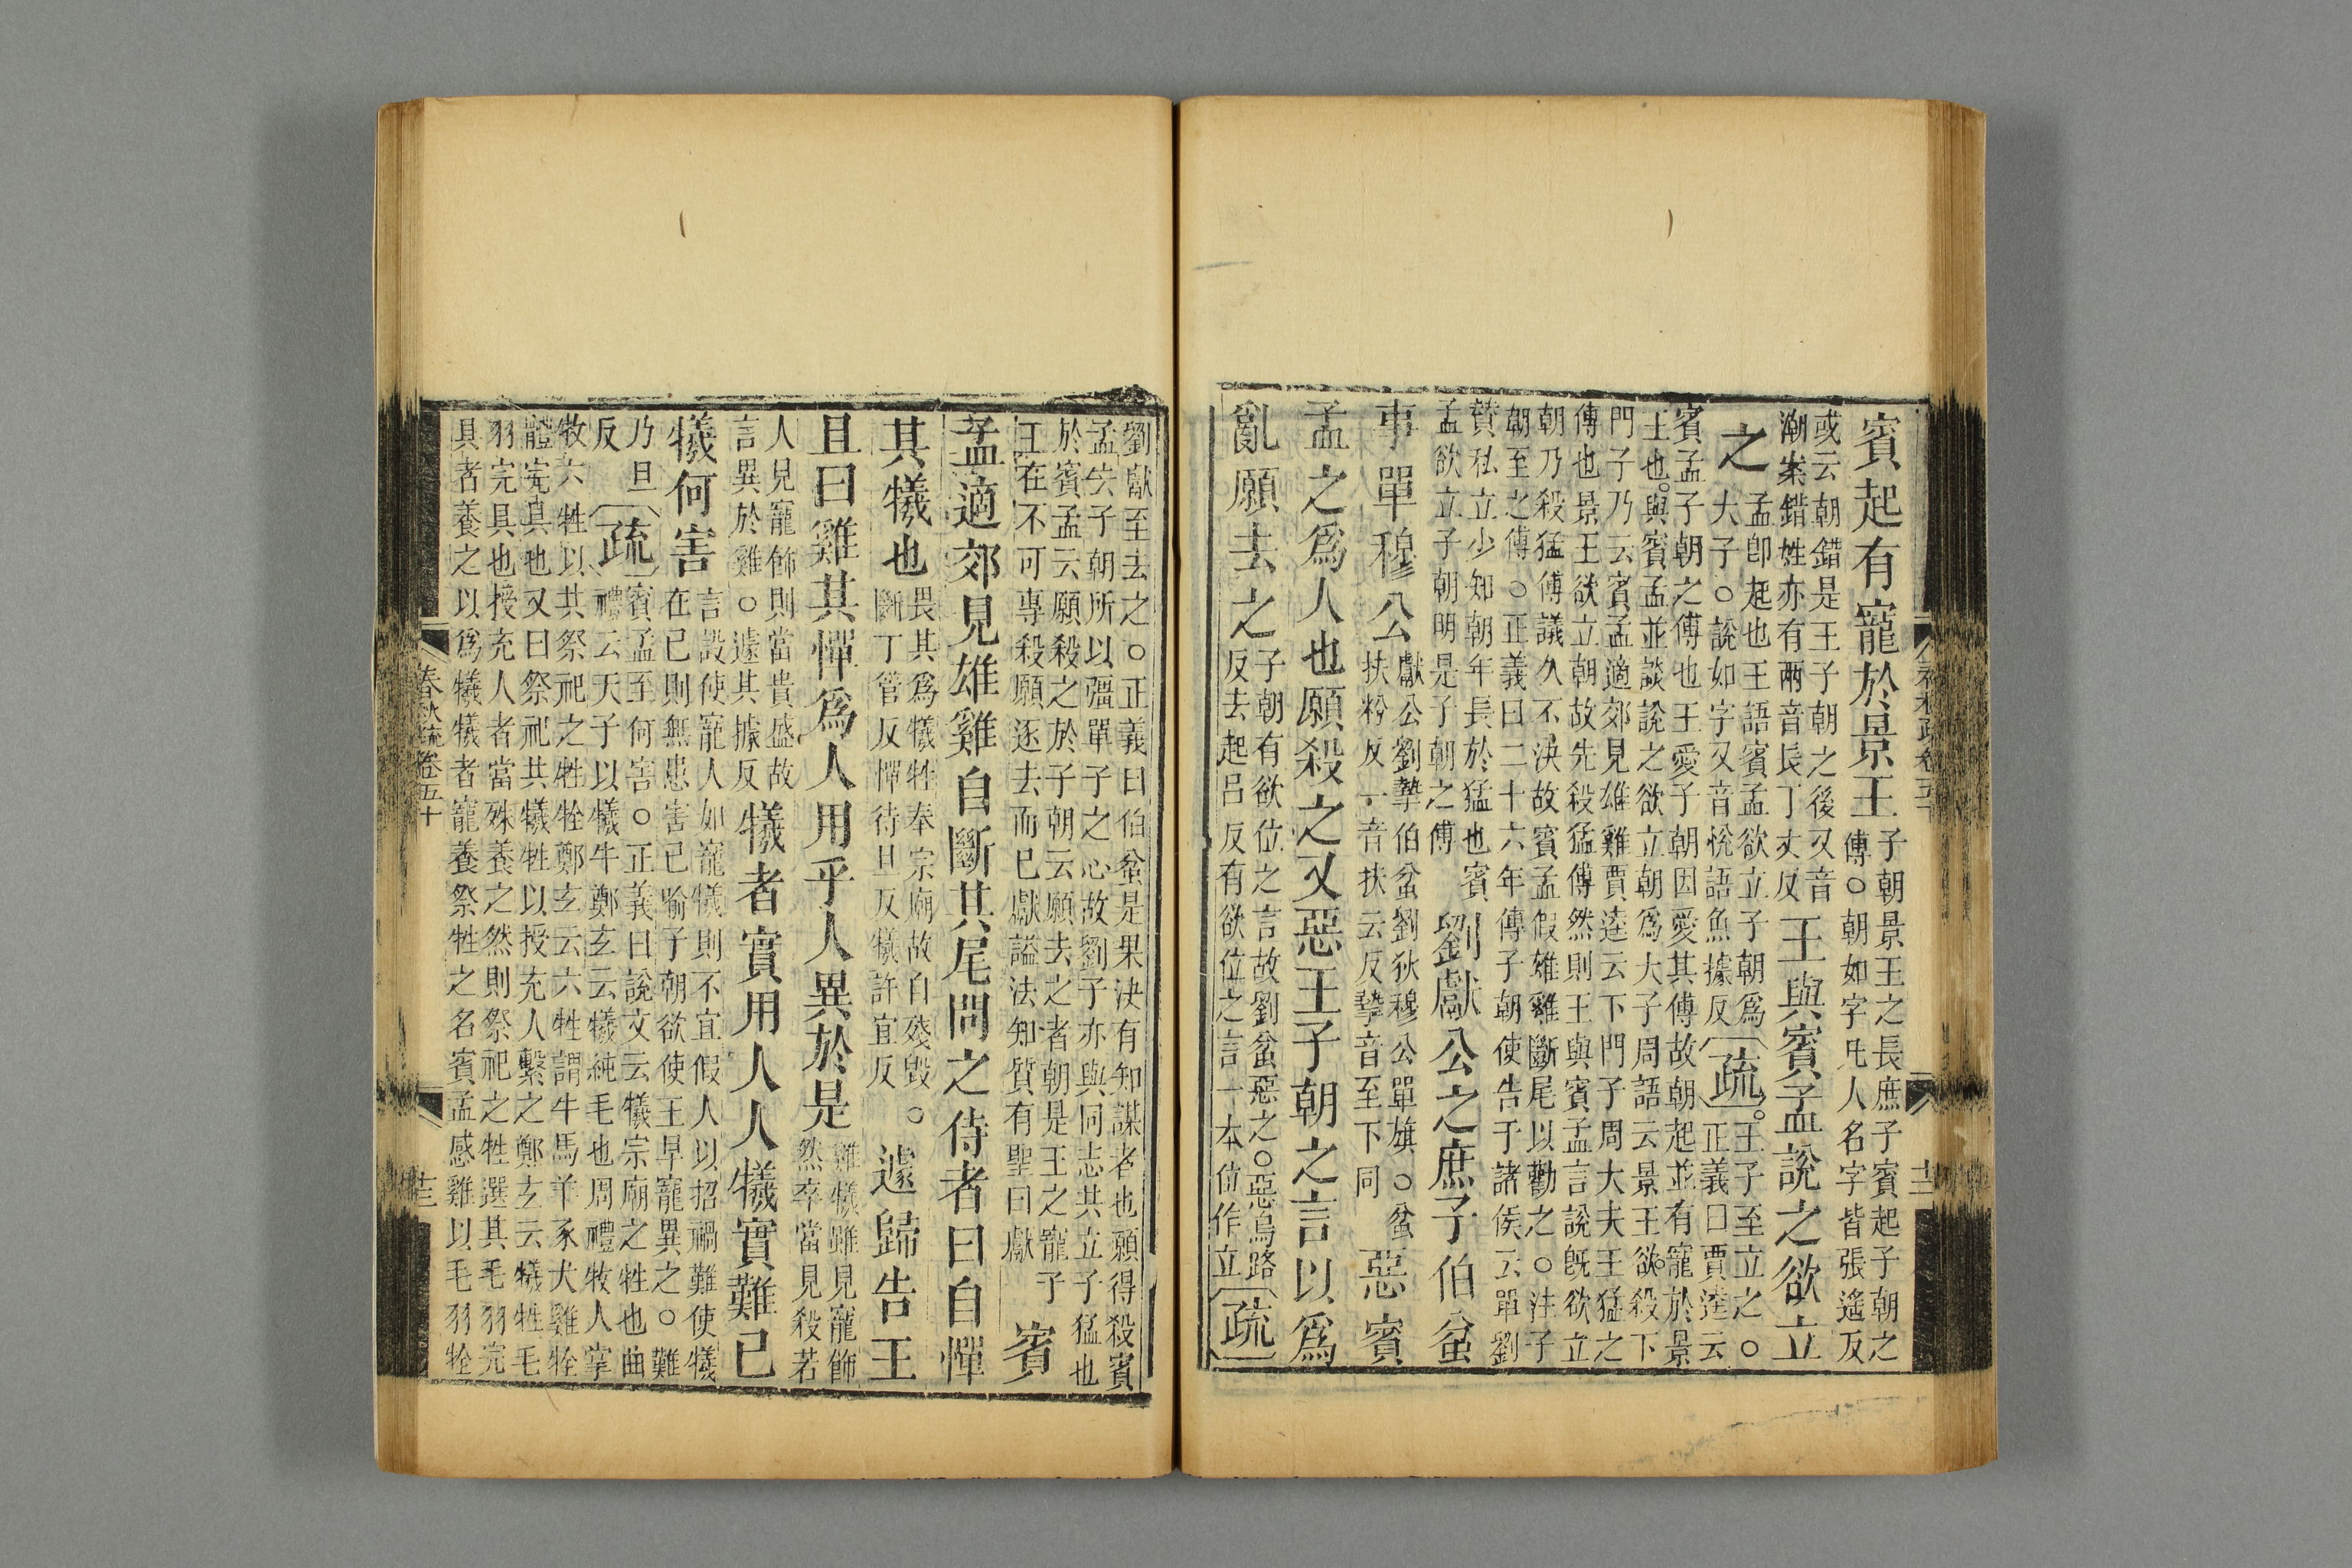 賓起有寵於景王
子朝景王之長庶子賓起子朝之
傅○朝如字凡人名字皆張遙反
或云朝錯是王子朝之後又音
潮案錯姓亦有兩音長丁丈反
王與賓孟說之欲立
之
孟卽起也王語賓孟欲立子朝爲
大子○說如字又音悅語魚據反
疏
王子至立之○
正義曰賈逵云
賓孟子朝之傅也王愛子朝因愛其傅故朝起並有寵於景
王也與賓孟並談說之欲立朝爲大子周語云景王欲殺下
門子乃云賓孟適郊見雄雞賈逵云下門子周大夫王猛之
傅也景王欲立朝故先殺猛傅然則王與賓孟言說既欲立
朝乃殺猛傅議久不決故賓孟假雄雞斷尾以勸之○注子
朝至之傅○正義曰二十六年傳子朝使告于諸侯云單劉
贊私立少知朝年長於猛也賓
孟欲立子朝明是子朝之傅
劉獻公之庶子伯蚠
事單穆公
獻公劉摯伯蚠劉狄穆公單旗○蚠
扶粉反一音扶云反摯音至下同
惡賓
孟之爲人也願殺之又惡王子朝之言以爲
亂願去之
子朝有欲位之言故劉蚠惡之○惡烏路
反去起呂反有欲位之言一本位作立
疏
劉獻至去之○正義曰伯蚠是果決有知謀者也願得殺賓
孟去子朝所以彊單子之心故劉子亦與同志共立子猛也
於賓孟云願殺之於子朝云願去之者朝是王之寵子
王在不可專殺願逐去而已獻諡法知質有聖曰獻
賓
孟適郊見雄雞自斷其尾問之侍者曰自憚
其犧也
畏其爲犧牲奉宗廟故自殘毀○
斷丁管反憚待旦反犧許宜反
遽歸告王
且曰雞其憚爲人用乎人異於是
雞犧雖見寵飾
然卒當見殺若
人見寵飾則當貴盛故
言異於雞○遽其據反
犧者實用人人犧實難已
犧何害
言設使寵人如寵犧則不宜假人以招禍難使犧
在已則無患害已喻子朝欲使王早寵異之○難
乃旦
反
疏
賓孟至何害○正義曰說文云犧宗廟之牲也曲
禮云天子以犧牛鄭玄云犧純毛也周禮牧人掌
牧六牲以共祭祀之牲牷鄭玄云六牲謂牛馬羊豕犬雞牷
體完具也又曰祭祀共犧牲以授充人繫之鄭玄云犧牲毛
羽完具也授充人者當殊養之然則祭祀之牲選其毛羽完
具者養之以爲犧犧者寵養祭牲之名賓孟感雞以毛羽牷
春秋疏卷五十